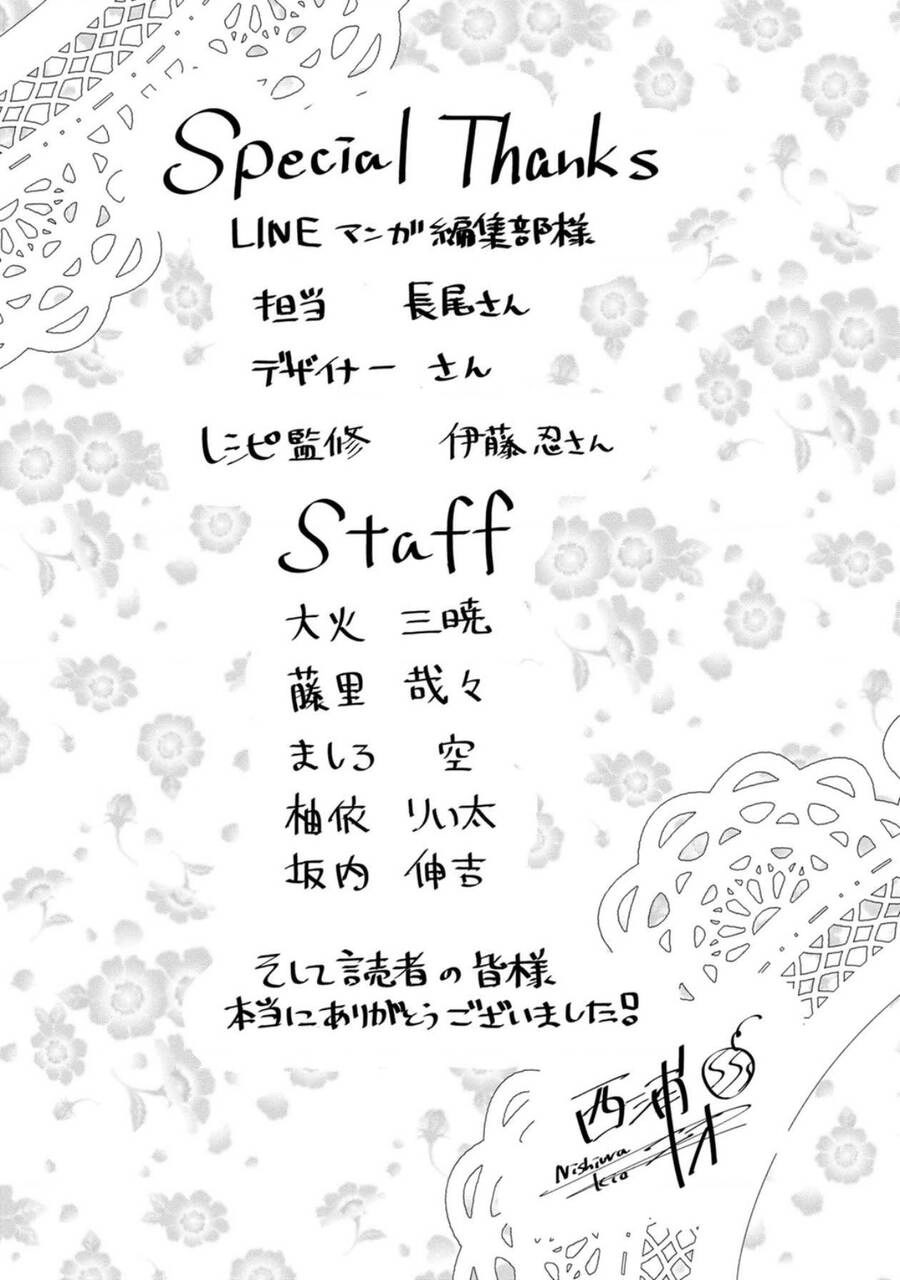 Special Thanks
LINE マンガ編集部様
担当 長尾さん
デザイナー さん
レシピ監修 伊藤忍さん
Staff
大火 三暁
藤里 哉々
ましろ 空
柚依 りい太
坂内 伸吉
そして読者の皆様
本当にありがとうございました!
西浦キオ
Nishiura
kio